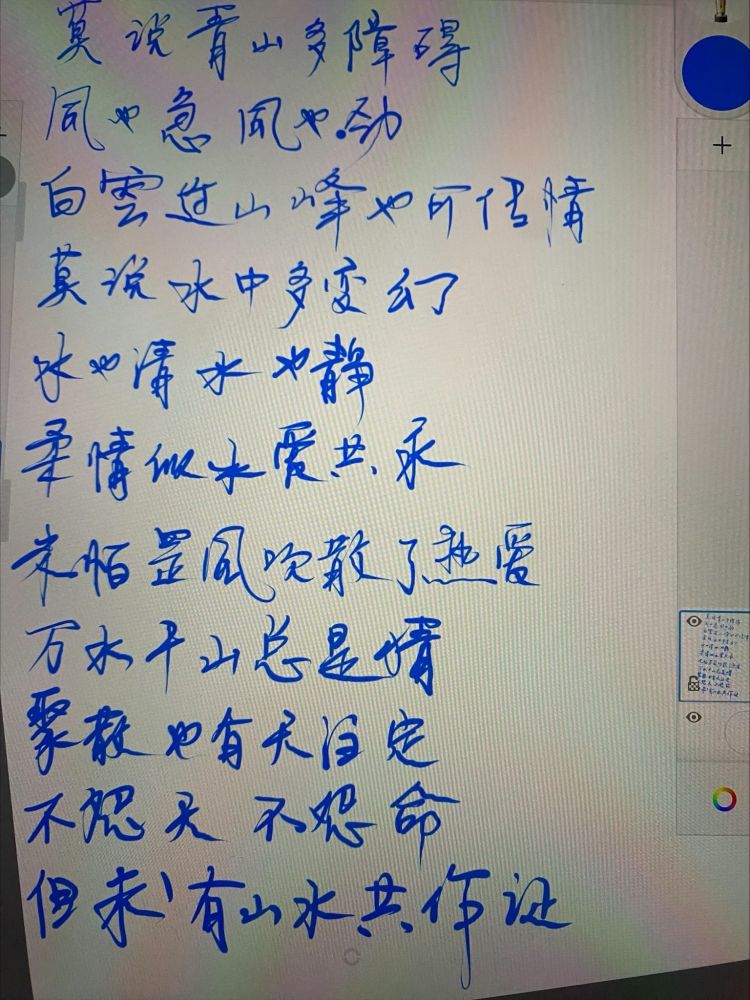 莫说青山多障碍
风也急风也劲
白雲过山峰也可传情
莫说水中多变幻
水也清水也静
柔情似水爱共永
未怕罡风吹散了热爱
万水千山总是情
聚散也有天注定
不怨天 不怨命
但求有山水共作证